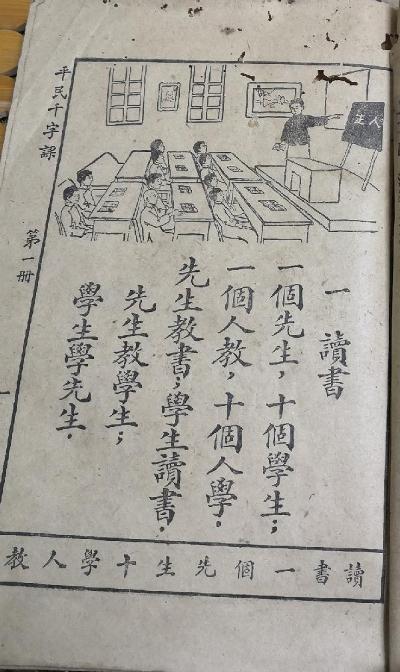 一　讀書
一個先生，十個學生；
一個人教，十個人學．
先生教書；學生讀書．
先生教學生；
學生學先生．
讀書一個先生十學人教
平民千字課
第一冊